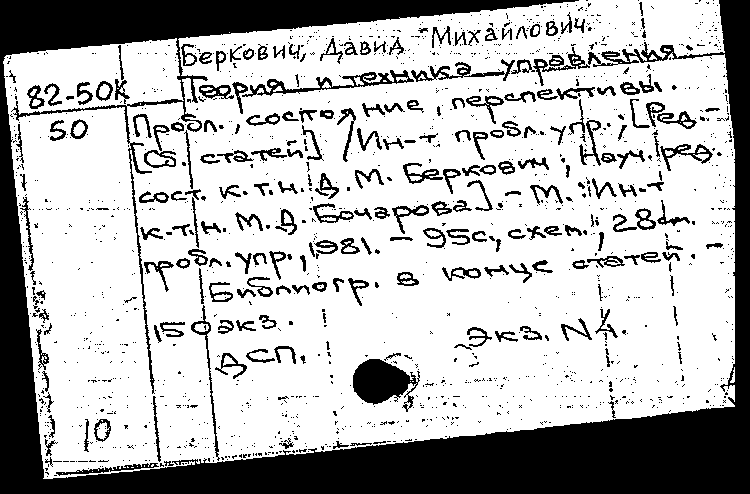 Беркович, Давид Михайлович.
82-50К Теория и техника управления.
50 Пробл., состояние, перспективы.
[Сб. статей] / Ин-т пробл. упр.; [Ред.-
сост. к.т.н. Д. М. Беркович; Науч. ред.
к.т.н. М. Д. Бочарова]. - М.: Ин-т
пробл. упр., 1981. - 95с., схем.; 28см.
Библиогр. в конце статей. -
150экз.
ДСП. Экз. N4.
10